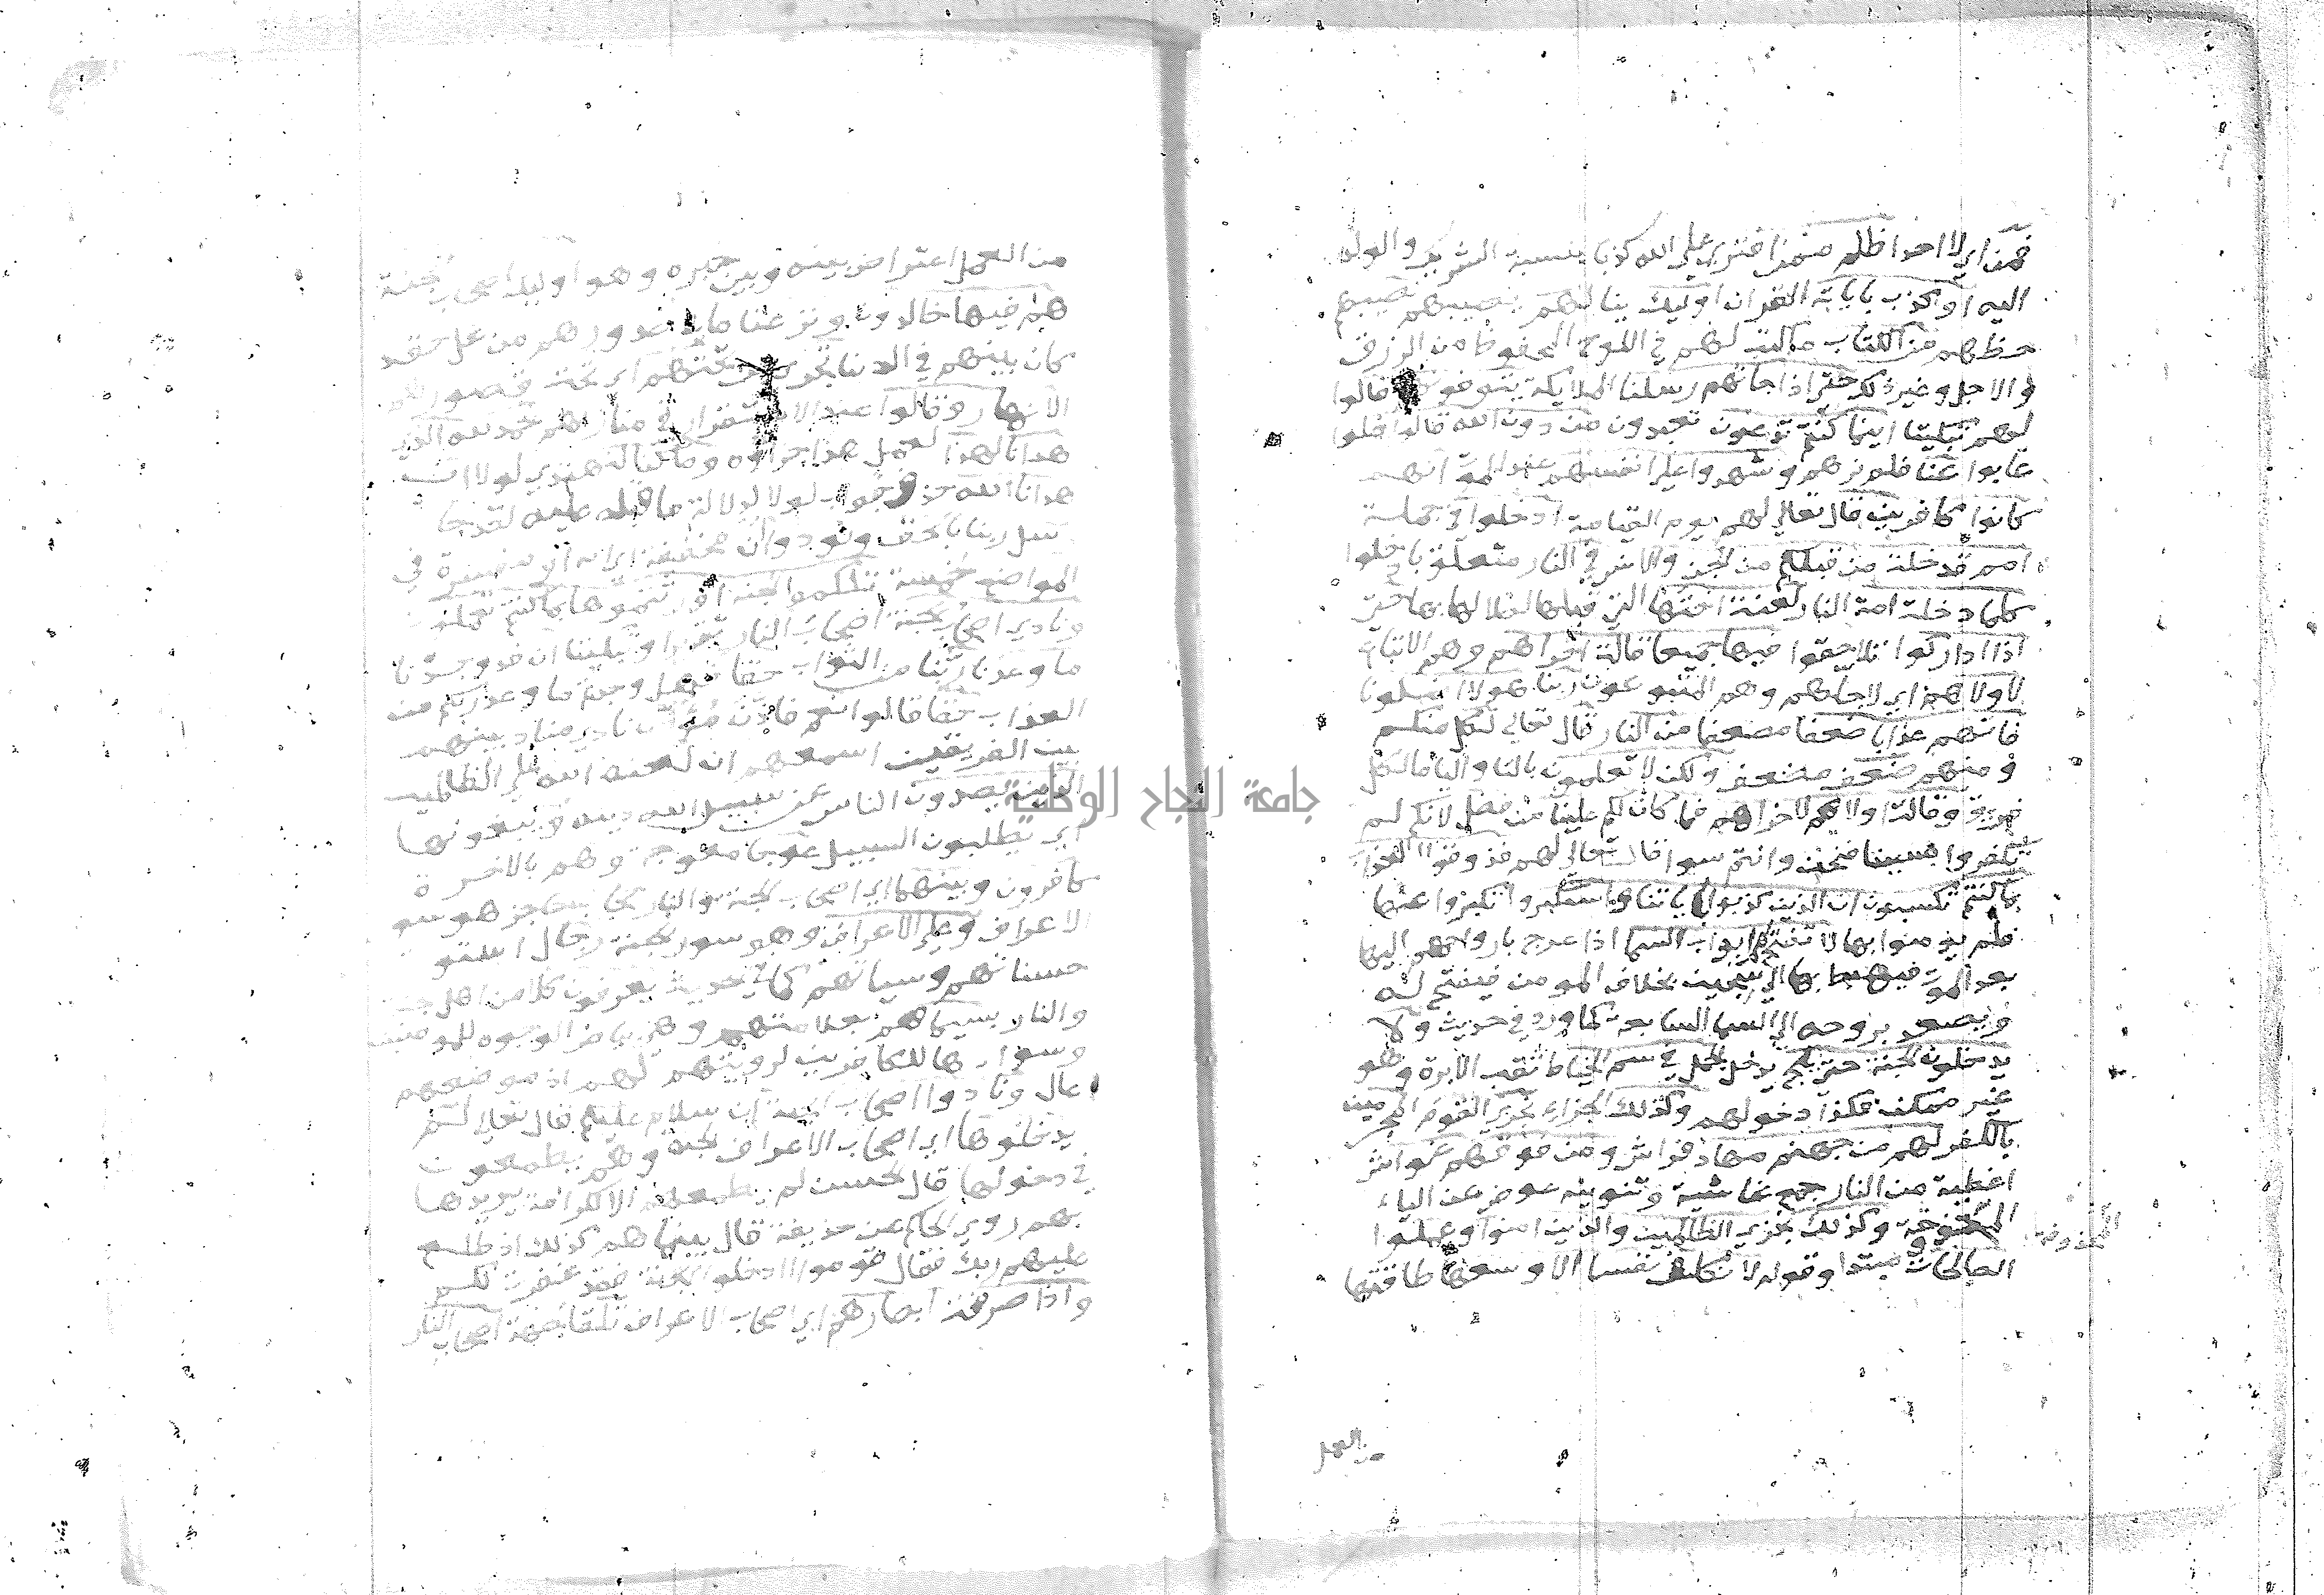 فمن اي لا احد اظلم ممن افتري علي الله كذبا بنسبة الشريك والولد
اليه او كذب باياته القران اوليك ينالهم يصيبهم نصيبهم
حظهم من الكتاب مما كتب لهم في اللوح المحفوظ من الرزق
والاجل وغير ذلك حتي اذا جاتهم رسلنا الملايكة يتوفونهم قالوا
لهم تبكيتا اينما كنتم تدعون تعبدون من دون الله قالوا ضلوا
غابوا عنا فلم نرهم وشهدوا علي انفسهم عند الموت انهم
كانوا كافرين قال تعالي لهم يوم القيامة ادخلوا في جملة
امم قد خلت من قبلكم من الجن والانس في النار متعلق بادخلوا
كلما دخلت امة النار لعنت اختها التي قبلها لضلالها بها حتي
اذا اداركوا تلاحقوا فيها جميعا قالت اخراهم وهم الاتباع
لاولاهم اي لاجلهم وهم المتبوعون ربنا هولا اضلونا
فاتهم عذابا ضعفا مضعفا من النار قال تعالي لكل منكم
ومنهم ضعف مضعف ولكن لا تعلمون بالتا واليا ما لكل
فريق وقالت اولاهم لاخراهم فما كان لكم علينا من فضل لانكم لم
تكفروا بسببنا فنحن وانتم سوا قال تعالي لهم فذوقوا العذاب
بما كنتم تكسبون ان الذين كذبوا باياتنا واستكبروا تكبروا عنها
فلم يومنوا بها لا تفتح لهم ابواب السما اذا عرج بارواحهم اليها
بعد الموت فيهبط بها الي سجين بخلاف المومن فيفتح له
ويصعد بروحه الي السما السابعة كما ورد في حديث ولا
يدخلون الجنة حتي يلج يدخل الجمل في سم الخياط ثقب الابرة وهو
غير ممكن فكذا دخولهم وكذلك الجزاء نجزي القوم المجرمين
بالكفر لهم من جهنم مهاد فراش ومن فوقهم غواش
اغطية من النار جمع غاشية وتنوينه عوض عن الياء
المحذوفة
وكذلك نجزي الظالمين والذين امنوا وعملوا
الصالحات مبتدا وقوله لا نكلف نفسا الا وسعها طاقتها
من العمل
من العمل اعتراض بينه وبين خبره وهو اوليك اصحاب الجنة
هم فيها خالدون ونزعنا ما في صدورهم من غل حقد
كان بينهم في الدنيا تجري من تحتهم اي تحت قصورهم
الانهار وقالوا عند الاستقرار في منازلهم الحمد لله الذي
هدانا لهذا العمل هذا جزاوه وما كنا لنهتدي لولا ان
هدانا الله حذف جواب لولا لدلالة ما قبله عليه لقد جات
رسل ربنا بالحق ونودوا ان مخففة اي انه او مفسرة في
المواضع الخمسة تلكموا الجنة اورثتموها بما كنتم تعملون
ونادي اصحاب الجنة اصحاب النار تقريرا وتبكيتا ان قد وجدنا
ما وعدنا ربنا من الثواب حقا فهل وجدتم ما وعد ربكم من
العذاب حقا قالوا نعم فاذن موذن نادي مناد بينهم
بين الفريقين اسمعهم ان لعنة الله علي الظالمين
الذين يصدون الناس عن سبيل الله دينه ويبغونها
اي يطلبون السبيل عوجا معوجة وهم بالاخرة
كافرون وبينهما اي اصحاب الجنة والنار حجاب حاجز هو سور
الاعراف وعلي الاعراف وهو سور الجنة رجال استوت
حسناتهم وسياتهم كما في حديث يعرفون كلا من اهل الجنة
والنار بسيماهم بعلامتهم وهي بياض الوجوه للمومنين
وسوادها للكافرين لرويتهم لهم اذ موضعهم
عال ونادوا اصحاب الجنة ان سلام عليكم قال تعالي لم
يدخلوها اي اصحاب الاعراف الجنة وهم يطمعون
في دخولها قال الحسن لم يطمعهم الا لكرامة يريدها
بهم روي الحاكم عن حذيفة قال بينما هم كذلك اذ طلع
عليهم ربك فقال قوموا ادخلوا الجنة فقد غفرت لكم
واذا صرفت ابصارهم اي اصحاب الاعراف تلقا جهة اصحاب النار
جامعة النجاح الوطنية